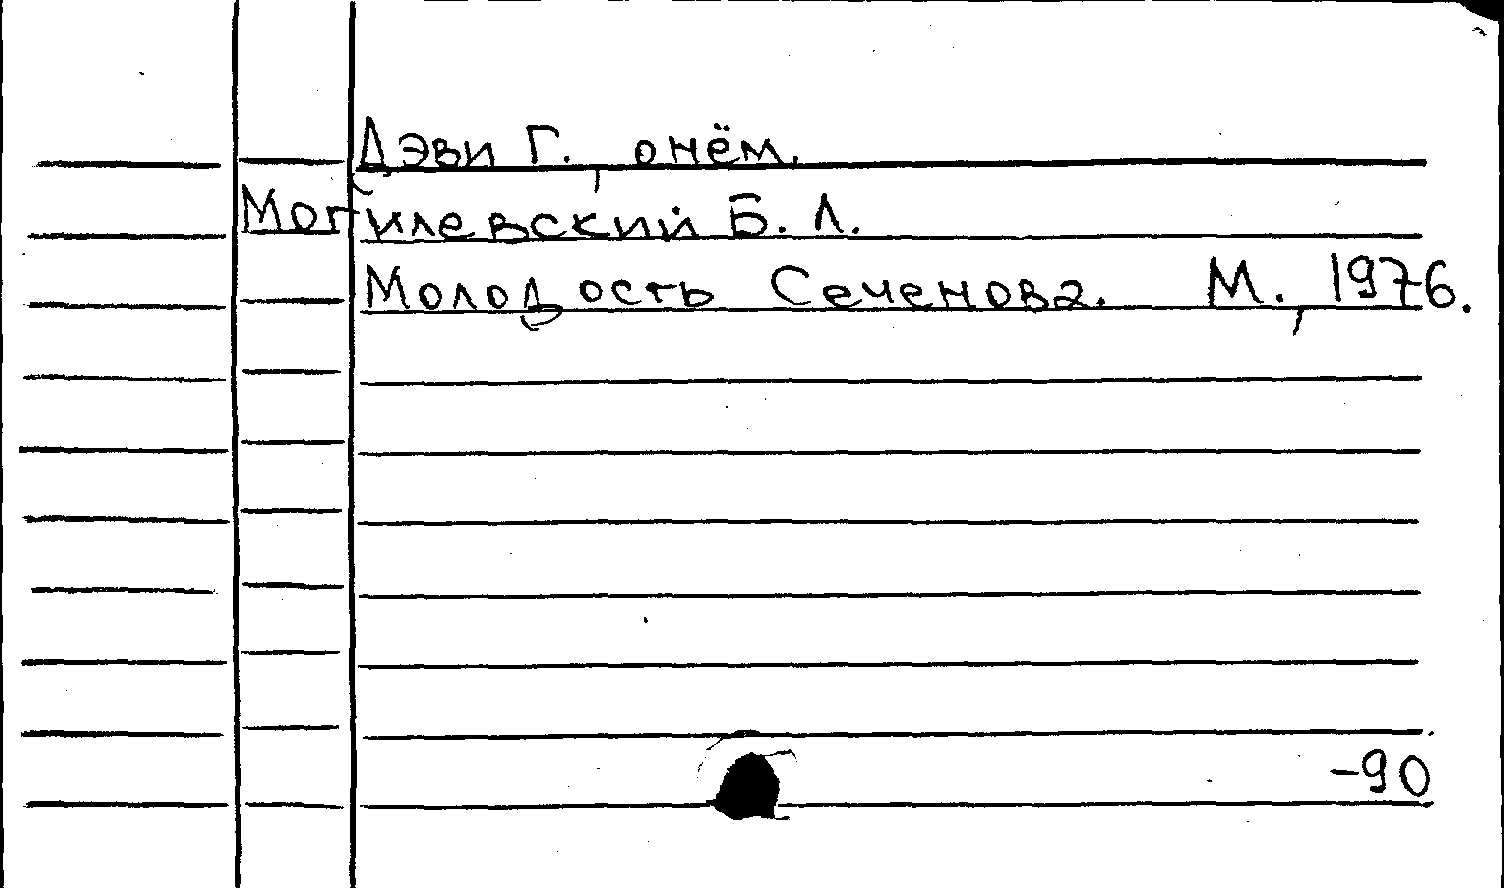 Дэви Г., о нём.
Могилевский Б. Л.
Молодость Сеченова. М., 1976.
-90